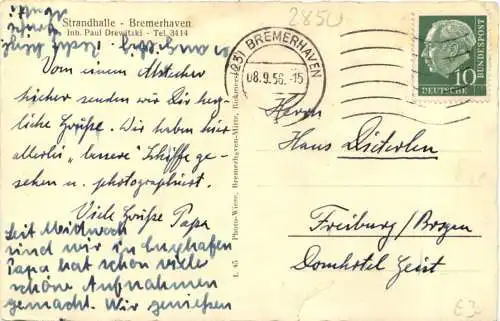 Strandhalle - Bremerhaven
Inh. Paul Drewitski - Tel. 3414
Von einem Abstecher
hierher senden wir Dir herz-
liche Grüße. Wir haben hier
allerlei „bessere" Schiffe ge-
sehen u. photographiert.
Viele Grüße Papa
Seit Mittwoch
sind wir in
Papa hat schon viele
schöne Aufnahmen
gemacht. Wir genießen
L. 45 Photo-Wiere, Bremerhaven-Mitte
2850
BREMERHAVEN
08.9.56.-15
10
DEUTSCHE
BUNDESPOST
Herrn
Hans Dieterlen
Freiburg/Brsg.
Domhotel Geist